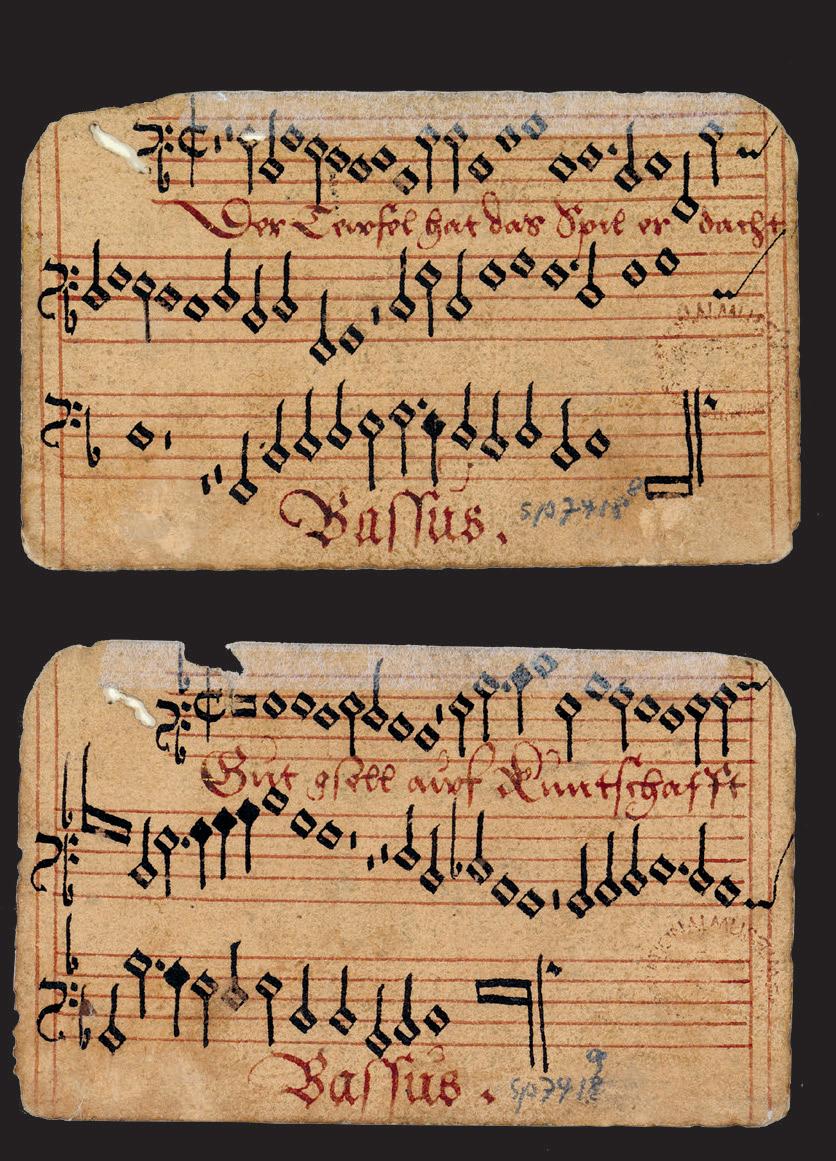 Der Teüfel hat das Spil er dacht
Bassus.
Gut gsell auf Kuntschafft
Bassus.